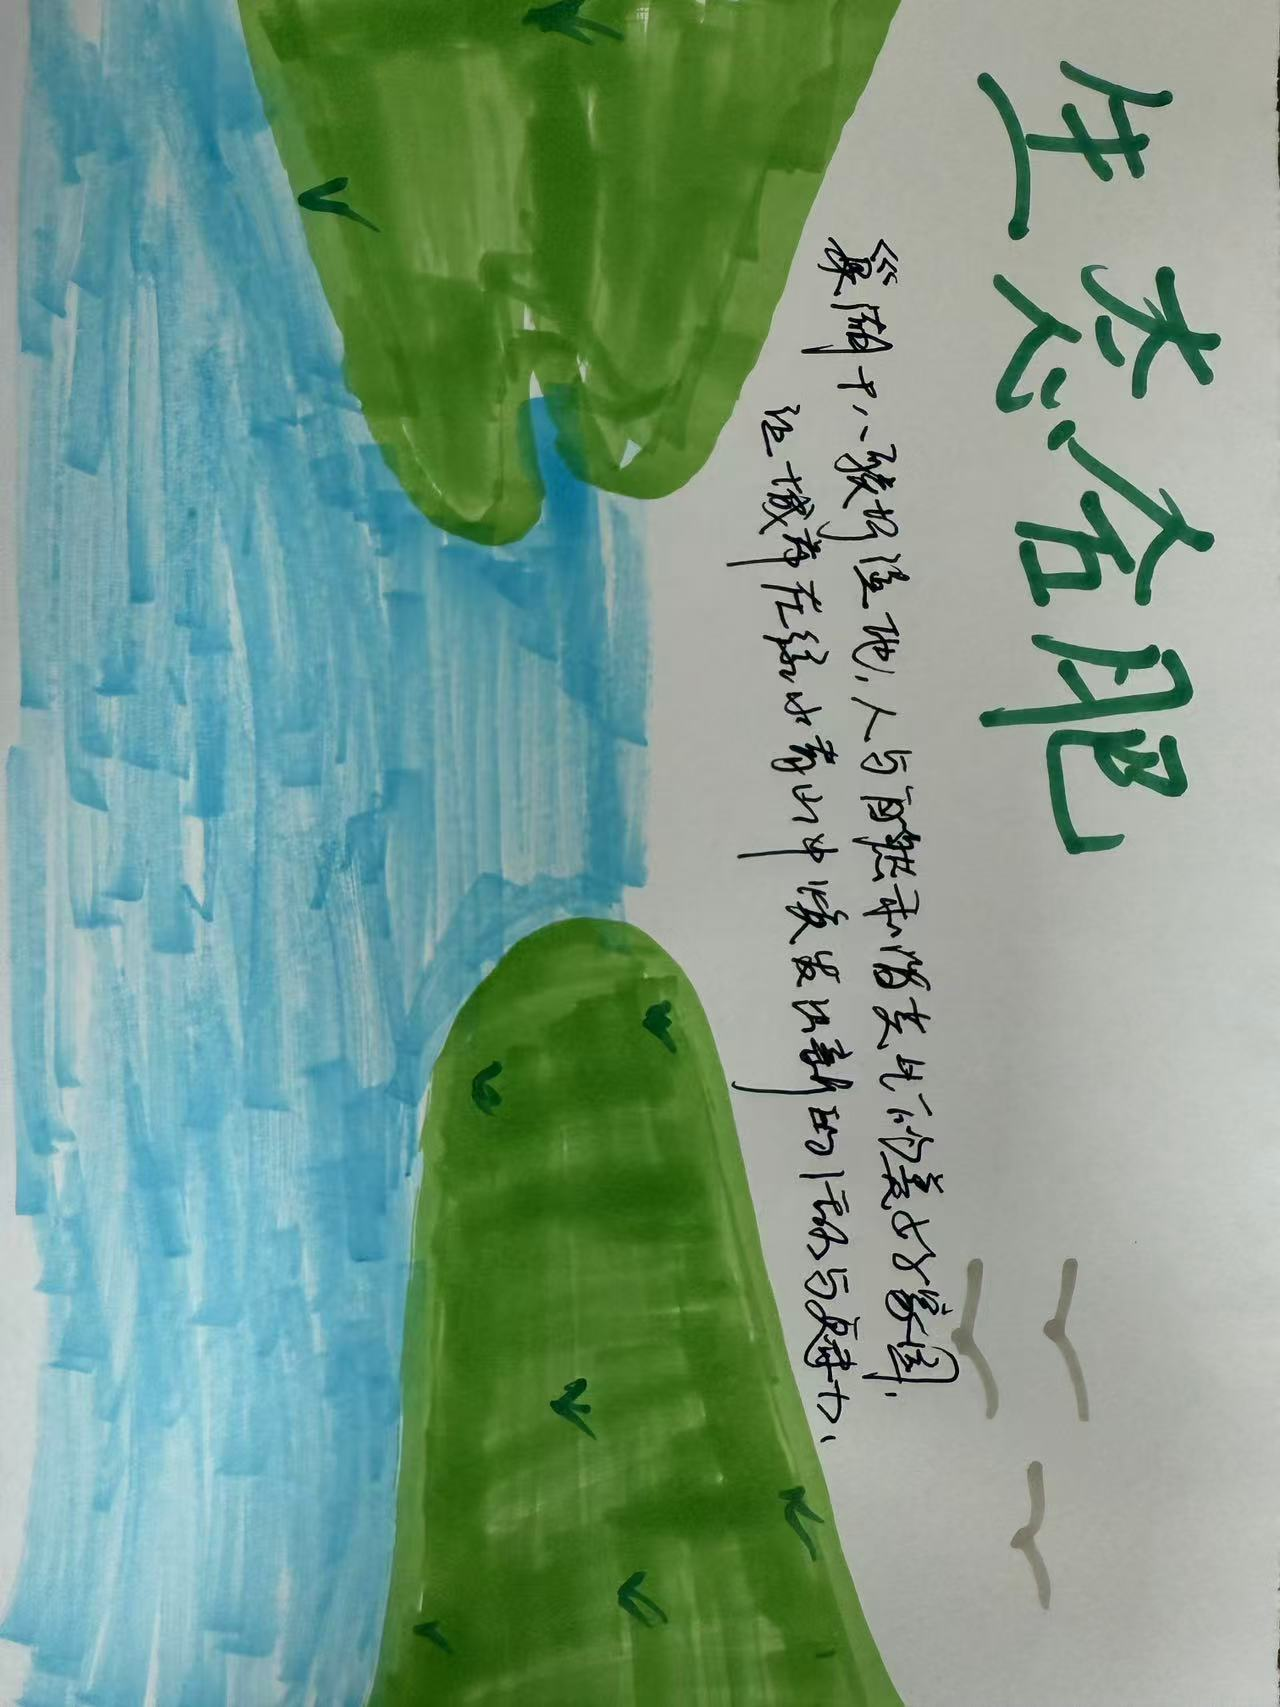 生态合肥
巢湖十八联圩湿地,人与自然和谐共生的美好家园,
让城市在绿水青山中焕发出新的活力与魅力、